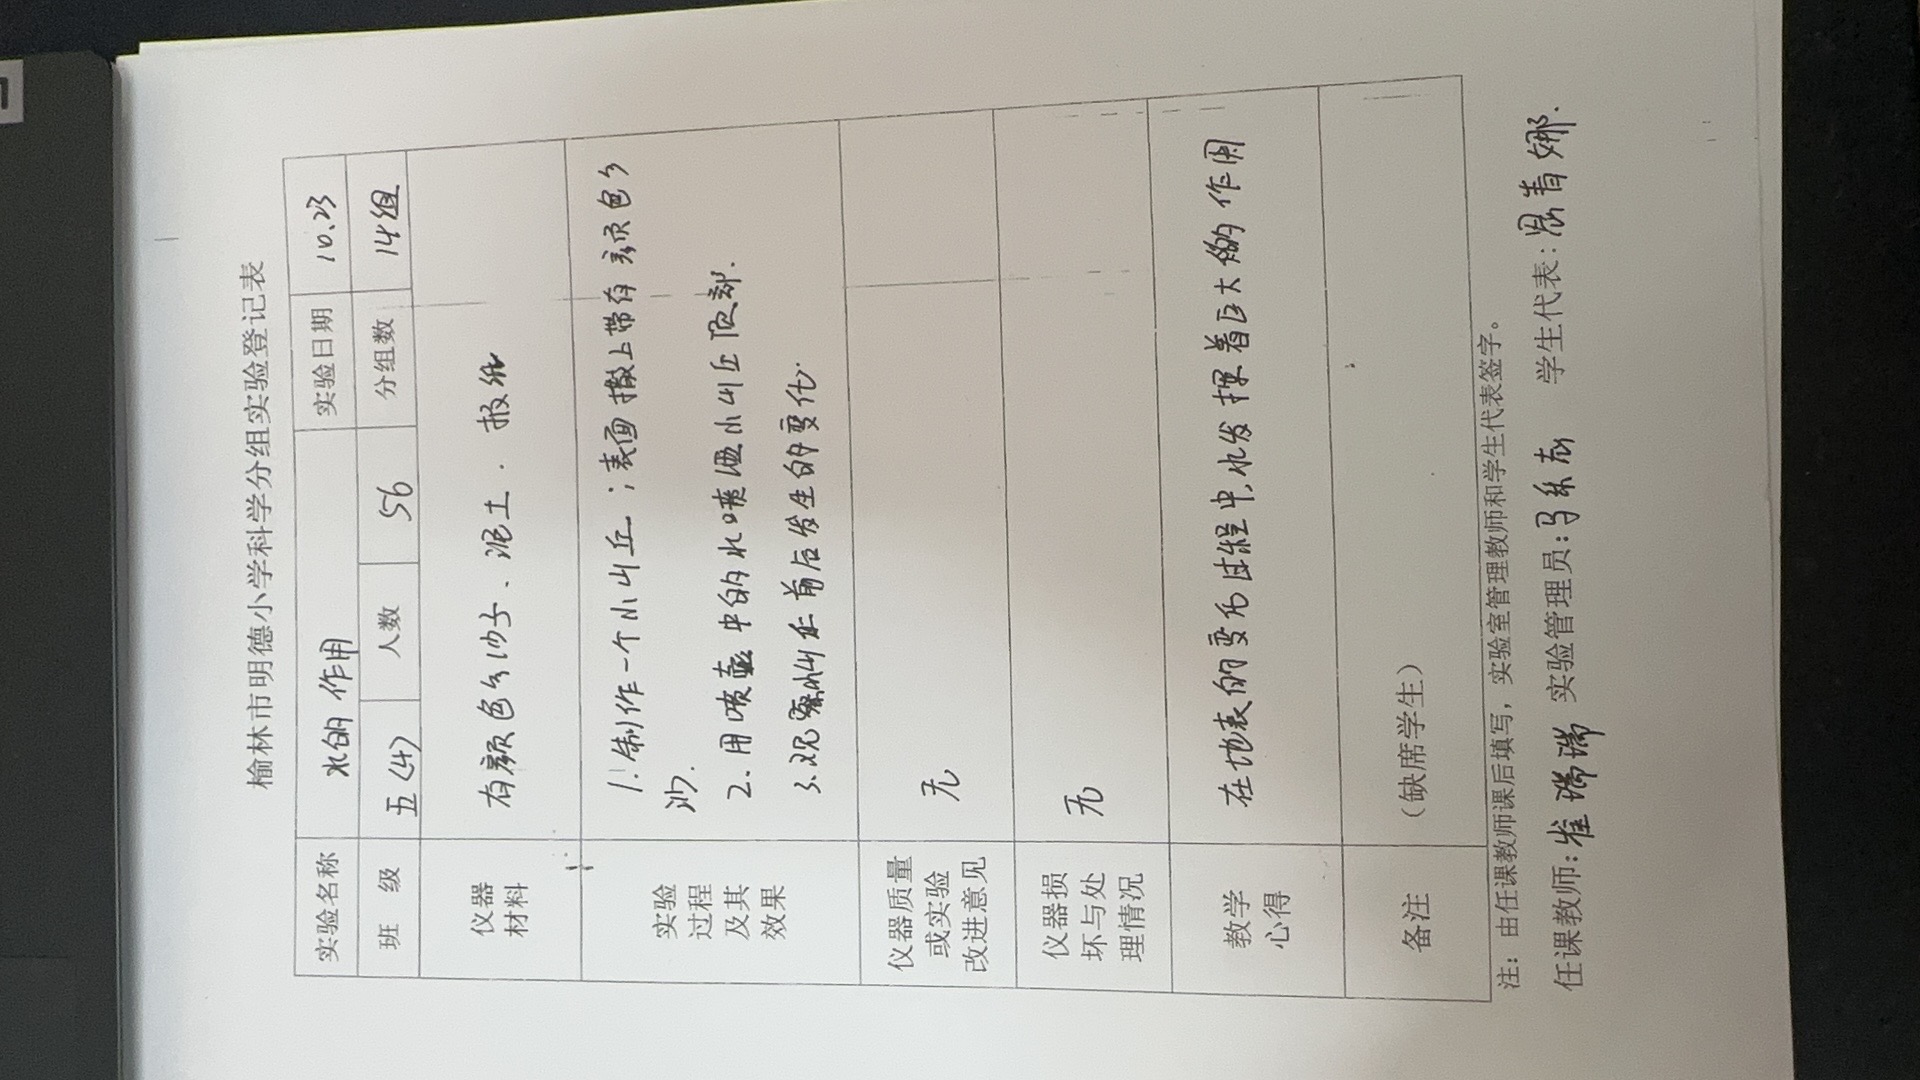 榆林市明德小学科学分组实验登记表
实验名称 水的作用 实验日期 10.23
班 级 五(4) 人数 56 分组数 14组
仪器
材料
有颜色的沙子、泥土、报纸
实验
过程
及其
效果
1.制作一个小山丘;表面撒上带有颜色的
沙.
2.用喷壶中的水喷洒小山丘顶部.
3.观察小山丘前后发生的变化.
仪器质量
或实验
改进意见
无
仪器损
坏与处
理情况
无
教学
心得
在地表的变化过程中,水发挥着巨大的作用
备注
(缺席学生)
注:由任课教师课后填写,实验室管理教师和学生代表签字。
任课教师:崔瑞瑞 实验管理员:马 学生代表:青娜.